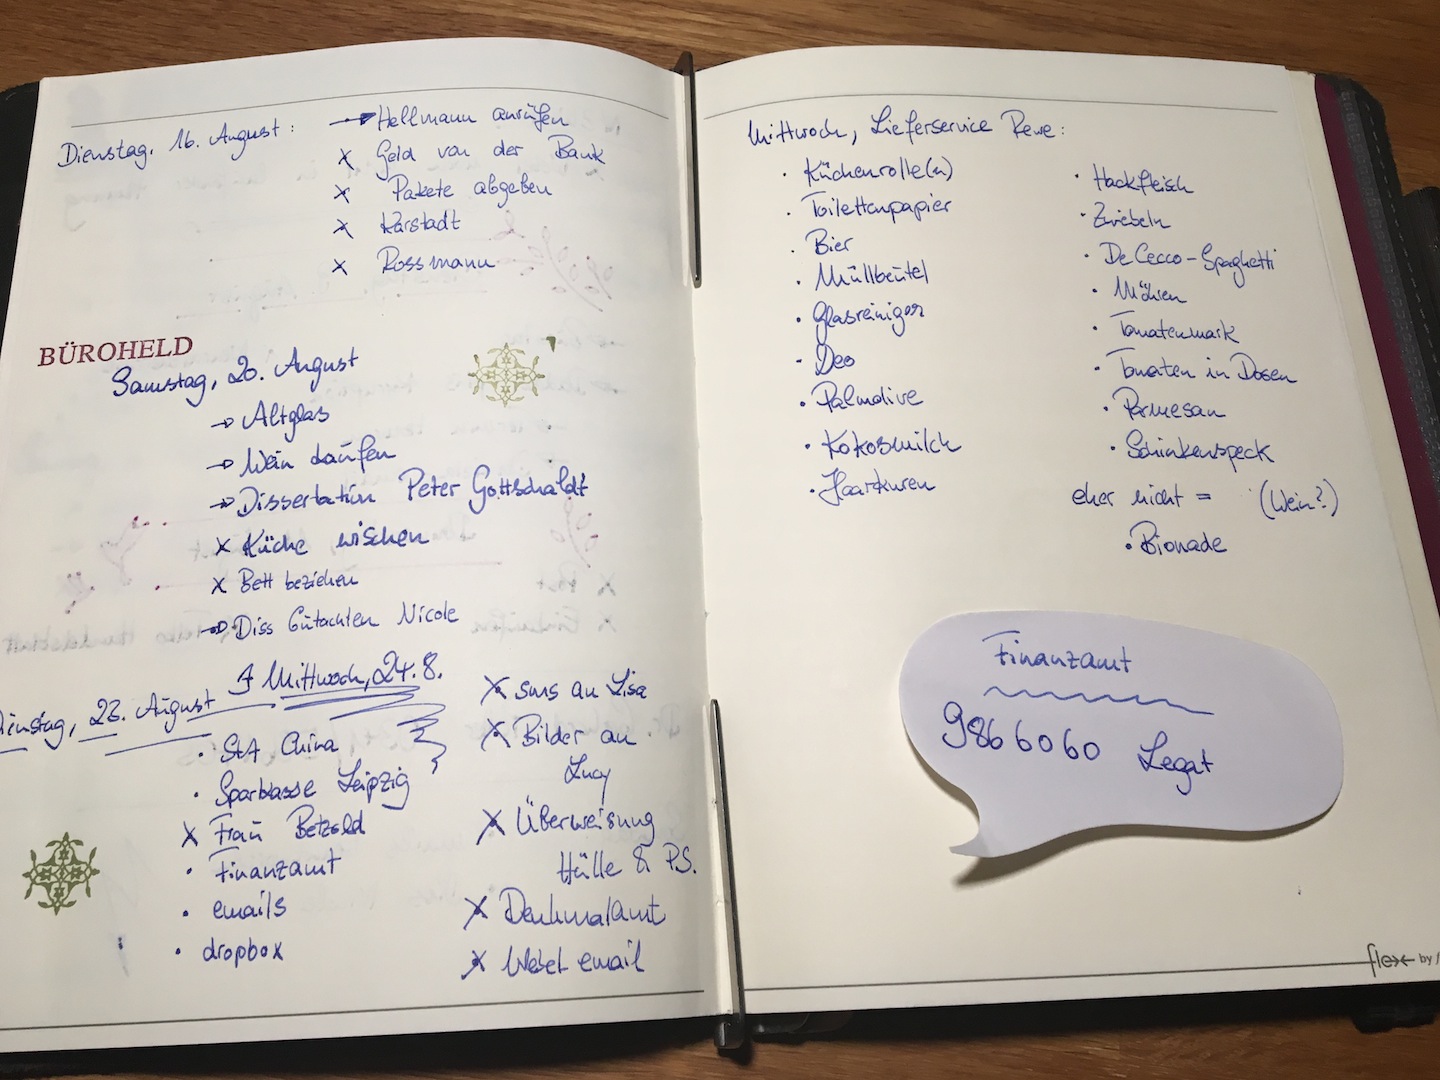 Dienstag, 16. August:
→ Hellmann anrufen
x Geld von der Bank
x Pakete abgeben
x Karstadt
x Rossmann
BÜROHELD
Samstag, 20. August
→ Altglas
→ Wein kaufen
→ Dissertation Peter Gottschaldt
x Küche wischen
x Bett beziehen
→ Diss Gutachten Nicole
Dienstag, 23. August & Mittwoch, 24.8.
· StA China
· Sparkasse Leipzig
x Frau Betzold
· Finanzamt
· emails
· dropbox
x sms an Lisa
x Bilder an
Lucy
x Überweisung
Hülle & P.S.
x Denkmalamt
x Webel email
Mittwoch, Lieferservice Rewe:
· Küchenrolle(n)
· Toilettenpapier
· Bier
· Müllbeutel
· Glasreiniger
· Deo
· Palmolive
· Kokosmilch
· Haarkuren
· Hackfleisch
· Zwiebeln
· De Cecco-Spaghetti
· Möhren
· Tomatenmark
· Tomaten in Dosen
· Parmesan
· Schinkenspeck
eher nicht = (Wein?)
· Bionade
Finanzamt
9866060 Legat
flex by